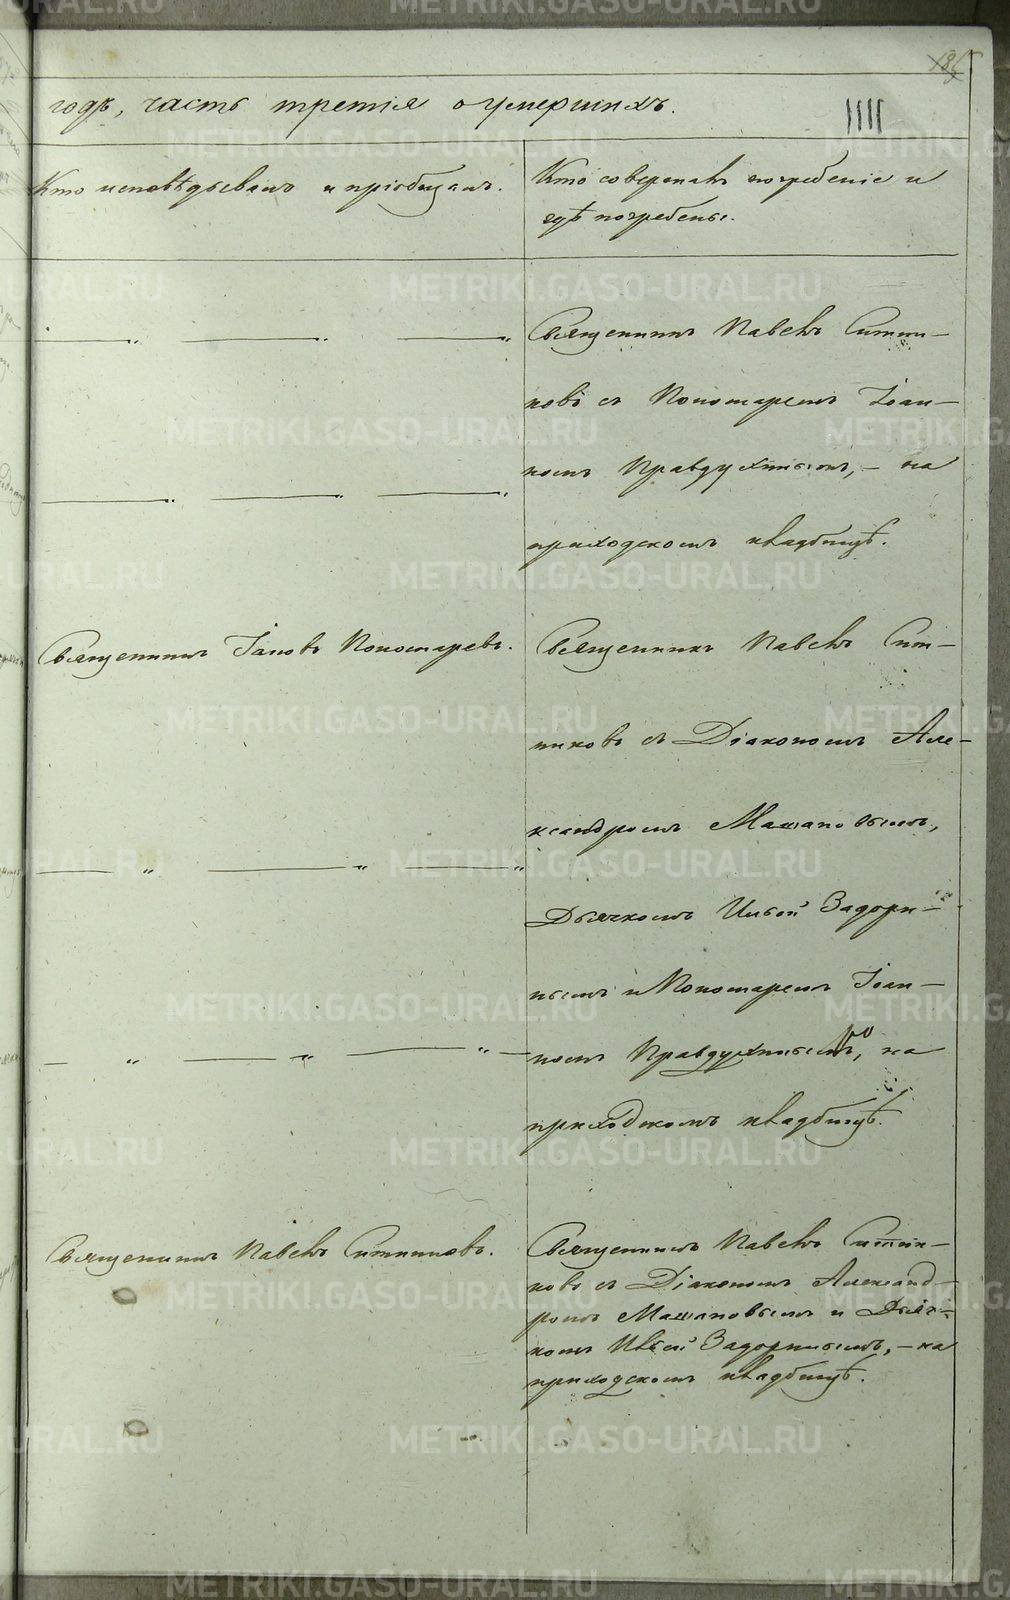 185
годѣ, часть третія о умершихъ.
Кто исповѣдывалъ и пріобщалъ.
Кто совершалъ погребеніе и
гдѣ погребены.
Священникъ Павелъ Ситни–
ковъ съ Пономаремъ Іоан–
номъ Правдухинымъ, – на
приходскомъ кладбищѣ.
Священникъ Іаковъ Пономаревъ.
Священникъ Павелъ Сит–
никовъ съ Діакономъ Але–
ксандромъ Машановымъ,
Дьячкомъ Ильей Задорн–
нымъ и Пономаремъ Іоан–
номъ Правдухинымъ, на
приходскомъ кладбищѣ.
Священникъ Павелъ Ситниковъ.
Священникъ Павелъ Ситни–
ковъ съ Діакономъ Александ–
ромъ Машановымъ и Дьяч–
комъ Ильей Задорнымъ, – на
приходскомъ кладбищѣ.
METRIKI.GASO-URAL.RU